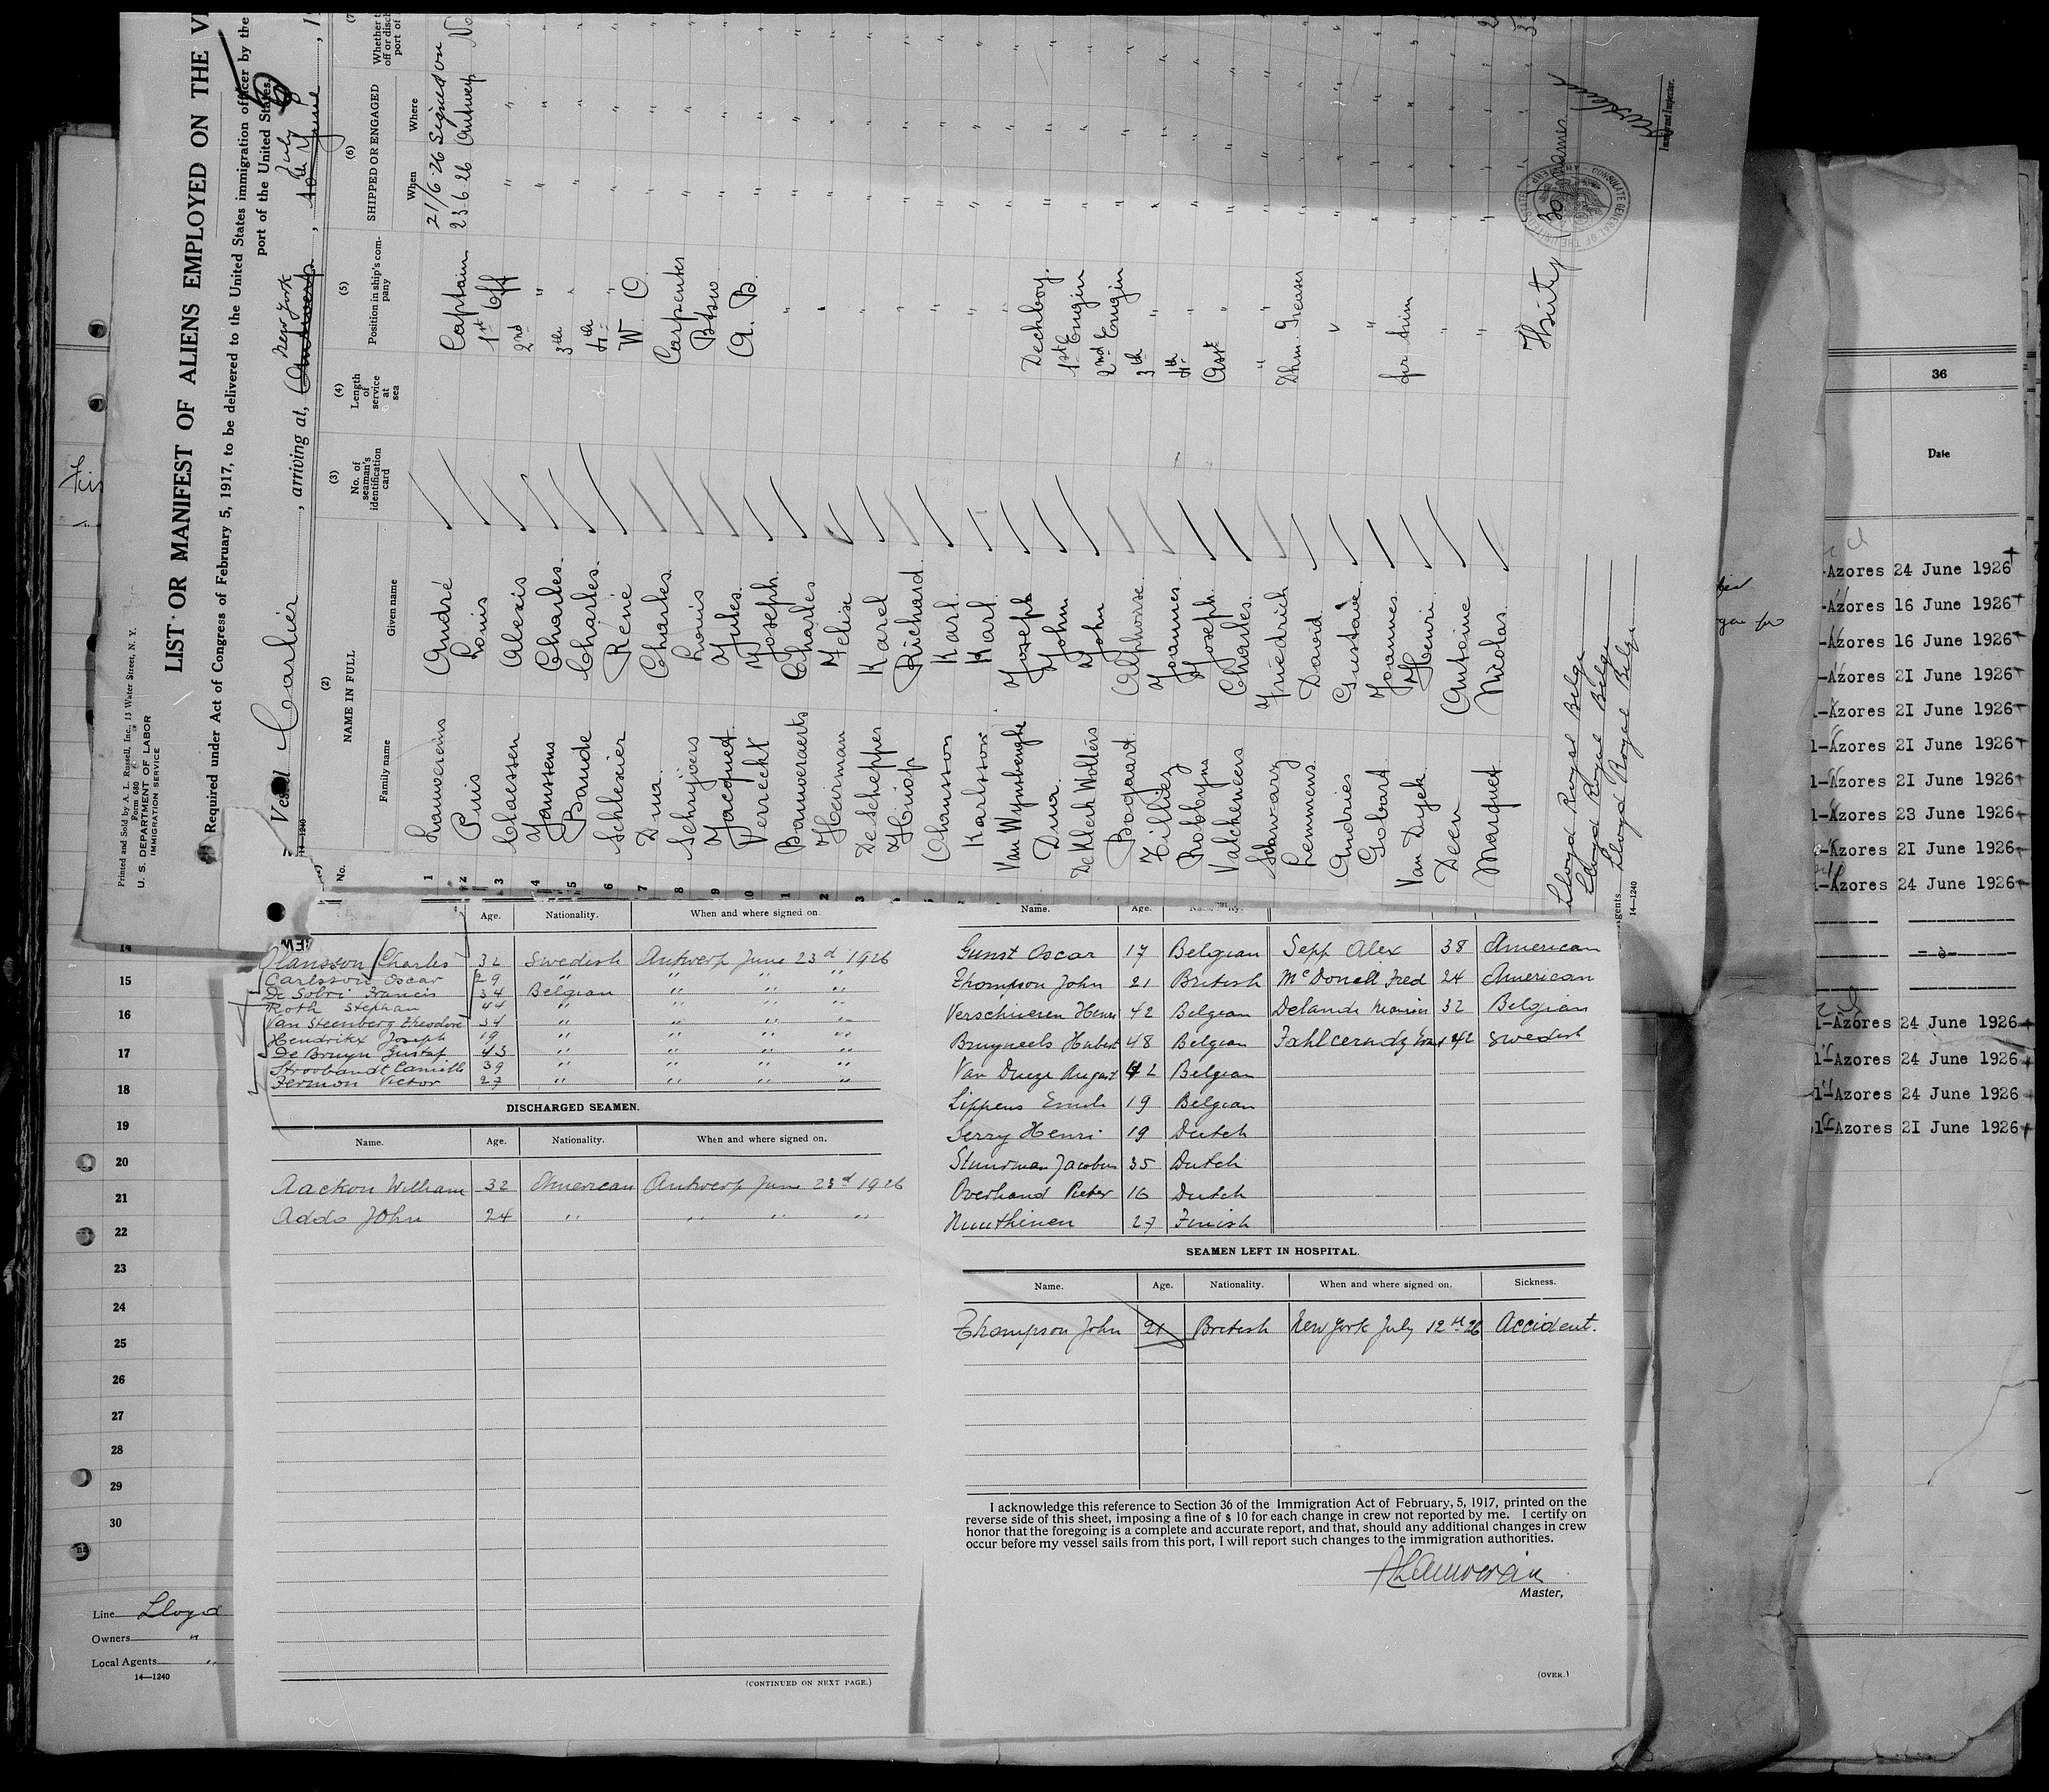 Printed and Sold by A. L. Russell, Inc., 13 Water Street, N. Y.
Form 680
U. S. DEPARTMENT OF LABOR
IMMIGRATION SERVICE
LIST OR MANIFEST OF ALIENS EMPLOYED ON THE
Required under Act of Congress of February 5, 1917, to be delivered to the United States immigration officer by the
port of the United States.
Vessel Carlier, arriving at, Antwerp New York, July
14—1240
No.
(2) NAME IN FULL
Family name Given name
(3) No. of seaman's identification card
(4) Length of service at sea
(5) Position in ship's company
(6) SHIPPED OR ENGAGED
When Where
1 Lauwereins André Captain 21/6-26 Signed on
2 Puis Louis 1st Off 23-6-26 Antwerp
3 Claessen Alexis 2nd "
4 Janssens Charles 3th "
5 Baude Charles 4th "
6 Schlexier Réné W O.
7 Drua Charles Carpenter
8 Schrijvers Louis Btsw
9 Jacquet Jules A. B.
10 Verreckt Joseph "
1 Bauweraerts Charles "
2 Heirman Felise "
3 De Schepper Karel "
Huiop Richard "
Ohansson Karl "
Karlsson Karl "
Van Wynsberghe Joseph Deckboy
Drua John 1st Engin
De Klerk Wolters John 2nd Engin
Bogaart Alphonse 3th "
Tilliez Joannes 4th "
Robbyns Joseph Asst "
Valcheneers Charles "
Schwarz Friedrich Dkm. Greaser
Lemmens David "
Andries Gustave "
Gobart Joannes for trim
Van Dyck Henri "
Deen Antoine "
Marquet Nicolas "
Thirty (30) names
CONSULATE GENERAL OF THE UNITED STATES
Immigrant Inspector.
Lloyd Royal Belge
Lloyd Royal Belge
Agents Lloyd Royal Belge
14—1240
Age. Nationality. When and where signed on.
Olansson Charles 32 Swedish Antwerp June 23d 1926
Carlsson Oscar 29 " " " "
De Solri Francis 34 Belgian " " "
Roth Stephan 44 " " " "
Van Steenberg Theodore 34 " " " "
Hendrikx Joseph 19 " " " "
De Bruyn Gustaf 43 " " " "
Stroobandt Camille 39 " " " "
Fermon Victor 27 " " " "
DISCHARGED SEAMEN.
Name. Age. Nationality. When and where signed on.
Aackon William 32 American Antwerp June 23d 1926
Addo John 24 " " " "
(CONTINUED ON NEXT PAGE.)
Name. Age. Nationality.
Gunst Oscar 17 Belgian Sepp Alex 38 American
Thompson John 21 British McDonell Fred 24 American
Verschueren Henri 42 Belgian Delande Maurice 32 Belgian
Bruyneels Hubert 48 Belgian 42 Swedish
Van Dueze August 42 Belgian
Lippens Emile 19 Belgian
Serry Henri 19 Dutch
Stuurman Jacobus 35 Dutch
Overhand Pieter 16 Dutch
Nuuthinen 27 Finish
SEAMEN LEFT IN HOSPITAL.
Name. Age. Nationality. When and where signed on. Sickness.
Thompson John 21 British New York July 12th 26 Accident.
I acknowledge this reference to Section 36 of the Immigration Act of February, 5, 1917, printed on the
reverse side of this sheet, imposing a fine of $ 10 for each change in crew not reported by me. I certify on
honor that the foregoing is a complete and accurate report, and that, should any additional changes in crew
occur before my vessel sails from this port, I will report such changes to the immigration authorities.
Master,
(OVER.)
14
15
16
17
18
19
20
21
22
23
24
25
26
27
28
29
30
Line Lloyd
Owners "
Local Agents "
14—1240
36
Date
-Azores 24 June 1926
-Azores 16 June 1926
-Azores 16 June 1926
-Azores 21 June 1926
-Azores 21 June 1926
l-Azores 21 June 1926
l-Azores 21 June 1926
l-Azores 23 June 1926
-Azores 21 June 1926
-Azores 24 June 1926
l-Azores 24 June 1926
l-Azores 24 June 1926
l-Azores 24 June 1926
l-Azores 21 June 1926